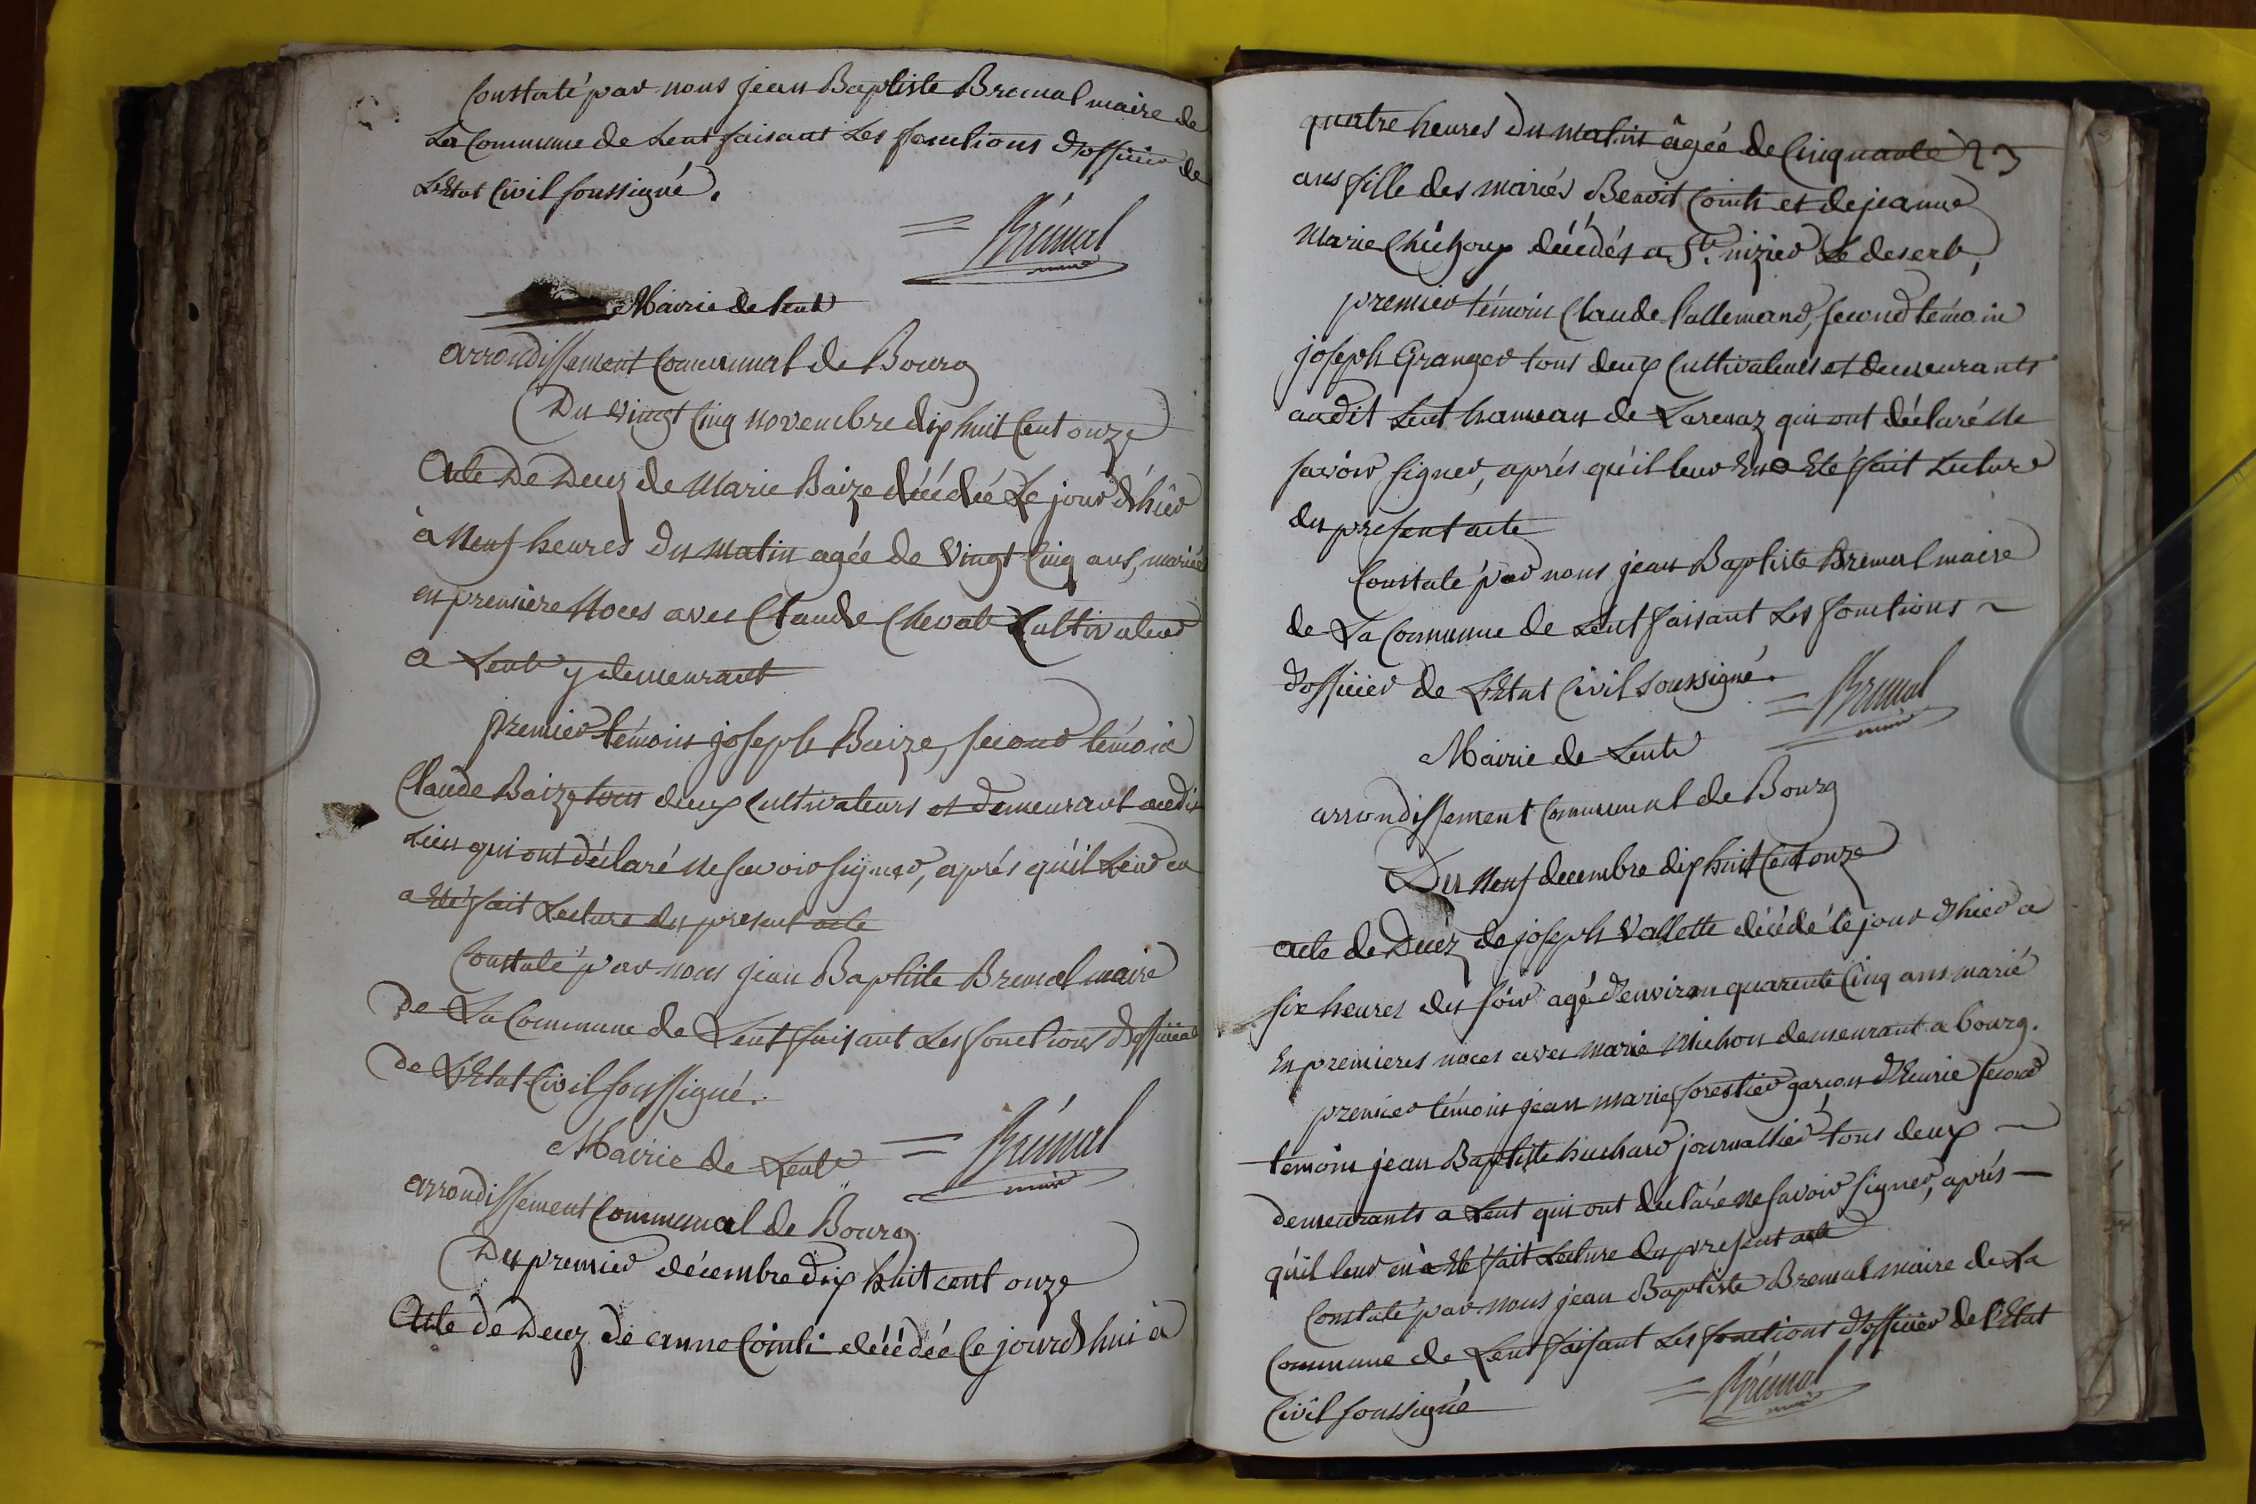 Constaté par nous jean Baptiste Brémal maire de
La Commune de Lent faisant Les fonctions d'officier de
L'Etat Civil soussigné.
= Brémal
maire
Mairie de Lent
arrondissement Communal de Bourg
Du vingt Cinq novembre dix huit Cent onze
Acte De Decez de Marie Baize décédée Le jour d'hier
à Neuf heures Du Matin agée de vingt Cinq ans, mariée
en premiere Noces avec Claude Chevat Cultivateur
a Lent y demeurant
premier témoin joseph Baize, second témoin
Claude Baize tous deux Cultivateurs et demeurant audit
Lieu qui ont déclaré Ne savoir signer, aprés qu'il Leur en
a Eté fait Lecture du present acte
Constaté par nous jean Baptiste Bremal maire
de La Commune de Lent faisant Les fonctions d'officier
de L'Etat Civil soussigné.
= Brémal
maire
Mairie de Lent
arrondissement Communal de Bourg
Du premier décembre dix huit cent onze
Acte de Decez de anne Cointi décédée Ce jourd'hui à
quatre heures du matin âgée de Cinquante 23
ans fille des mariés Benoit Cointi et de jeanne
Marie Chichoux décédés a St. nizier Le desert,
premier témoin Claude Lallemand, second témoin
joseph Granger tous deux Cultivateurs et demeurants
audit Lent hameau de Larenaz qui ont déclaré Ne
savoir signer, aprés qu'il leur En a Eté fait Lecture
du présent acte
Constaté par nous jean Baptiste Bremal maire
de La Commune de Lent faisant Les fonctions ~
d'officier de L'Etat Civil soussigné.
= Brémal
maire
Mairie de Lent
arrondissement Communal de Bourg
Du Neuf decembre dix huit Cent onze
acte de Decéz de joseph Vallette décédé le jour d'hier a
six heures du soir agé d'environ quarente Cinq ans marié
En premieres noces avec marie Michon demeurant a bourg.
premier témoin jean marie forestier garçon d'Ecurie second
temoin jean Baptiste huchard journallier tous deux ~
demeurants a Lent qui ont déclaré Ne savoir signer, aprés —
qu'il leur en a Eté fait Lecture du present acte
Constaté par nous jean Baptiste Bremal maire de La
Commune de Lent faisant Les fonctions d'officier de L'Etat
Civil soussigné
= Brémal
maire